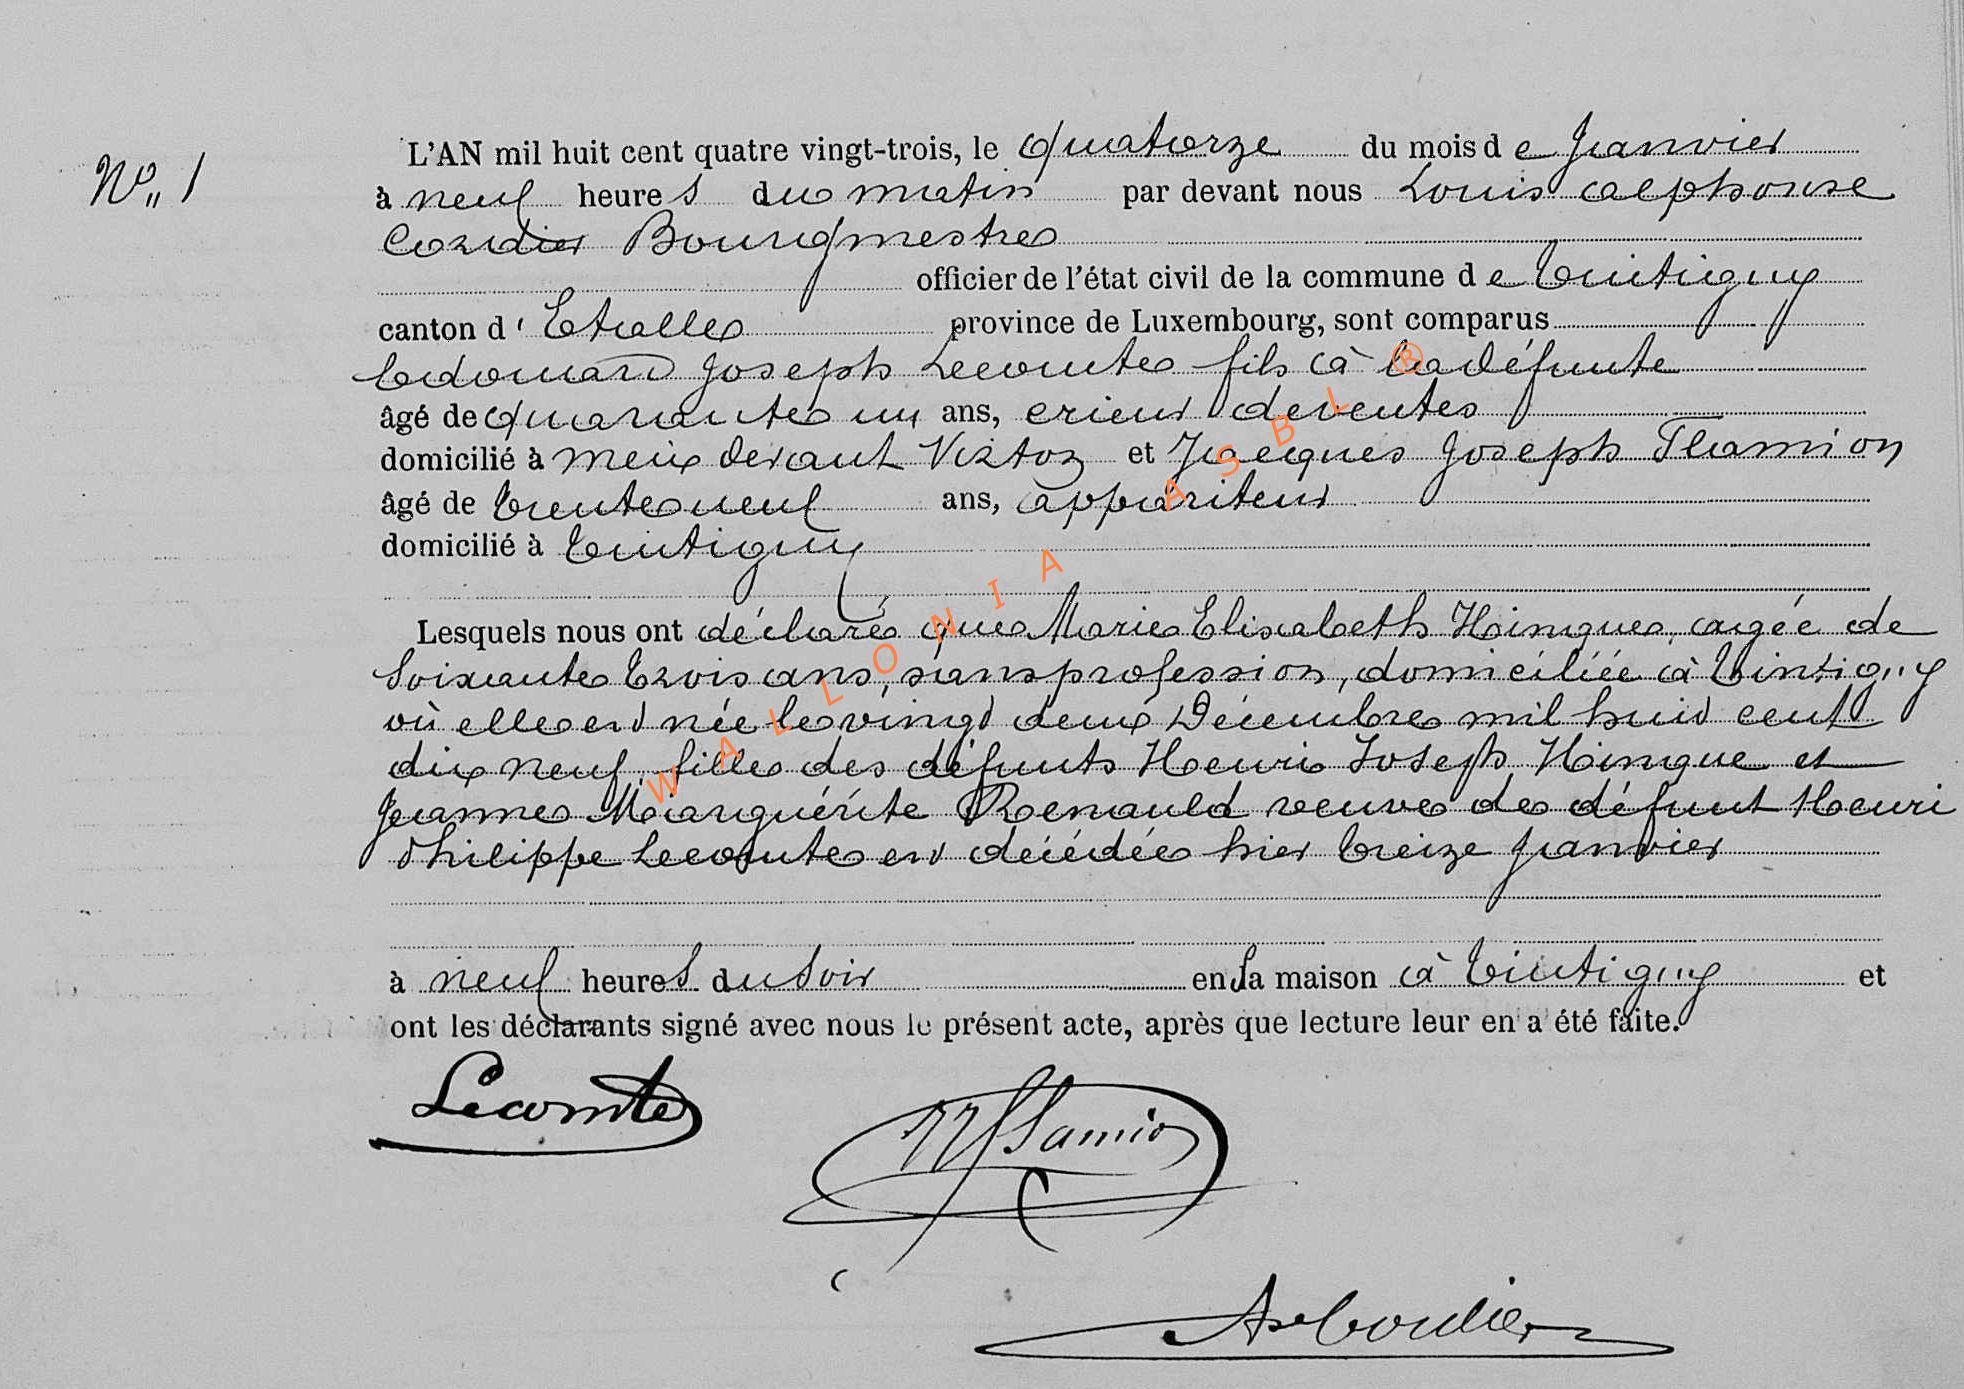 N° 1
L'AN mil huit cent quatre vingt-trois, le quatorze du mois de Janvier
à neuf heures du matin par devant nous Louis Alphonse
Cordier Bourgmestre
officier de l'état civil de la commune de Tintigny
canton d'Etalle province de Luxembourg, sont comparus
Edouard Joseph Lecomte fils à la défunte
âgé de quarante un ans, crieur de ventes
domicilié à Meix devant Virton et Jacques Joseph Flamion
âgé de trente neuf ans, appariteur
domicilié à Tintigny
Lesquels nous ont déclaré que Marie Elisabeth Hinque, agée de
soixante trois ans, sans profession, domiciliée à Tintigny
où elle est née le vingt deux Décembre mil huit cent
dix neuf, fille des défunts Henri Joseph Hinque et
Jeanne Marguérite Renauld veuve de défunt Henri
Philippe Lecomte est décédée hier treize janvier
à neuf heures du soir en sa maison à Tintigny et
ont les déclarants signé avec nous le présent acte, après que lecture leur en a été faite.
Lecomte
JJ Flamion
A Cordier
WALLONIA ASBL ®